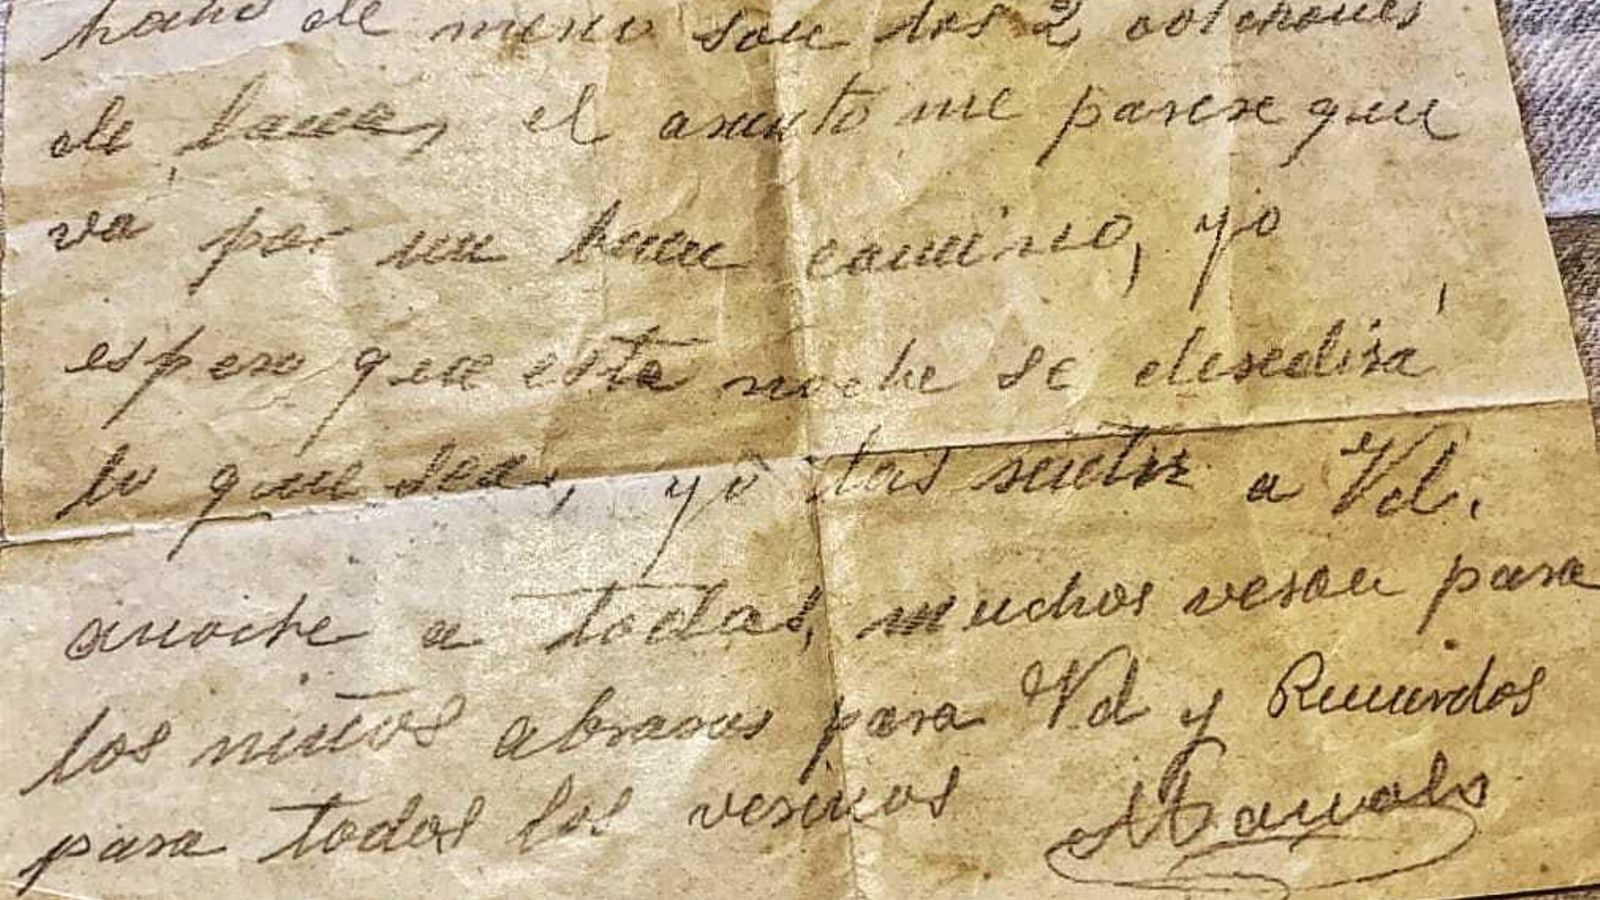 de meno son los 2 colchones
de lana, el asunto me parese que
vá por un buen camino, yo
espero que esta noche se desedirá
lo que sea, yo las sentir a Vd.
anoche a todas, muchos vesou para
los niños abrasos para Vd y Recuerdos
para todos los vesinos